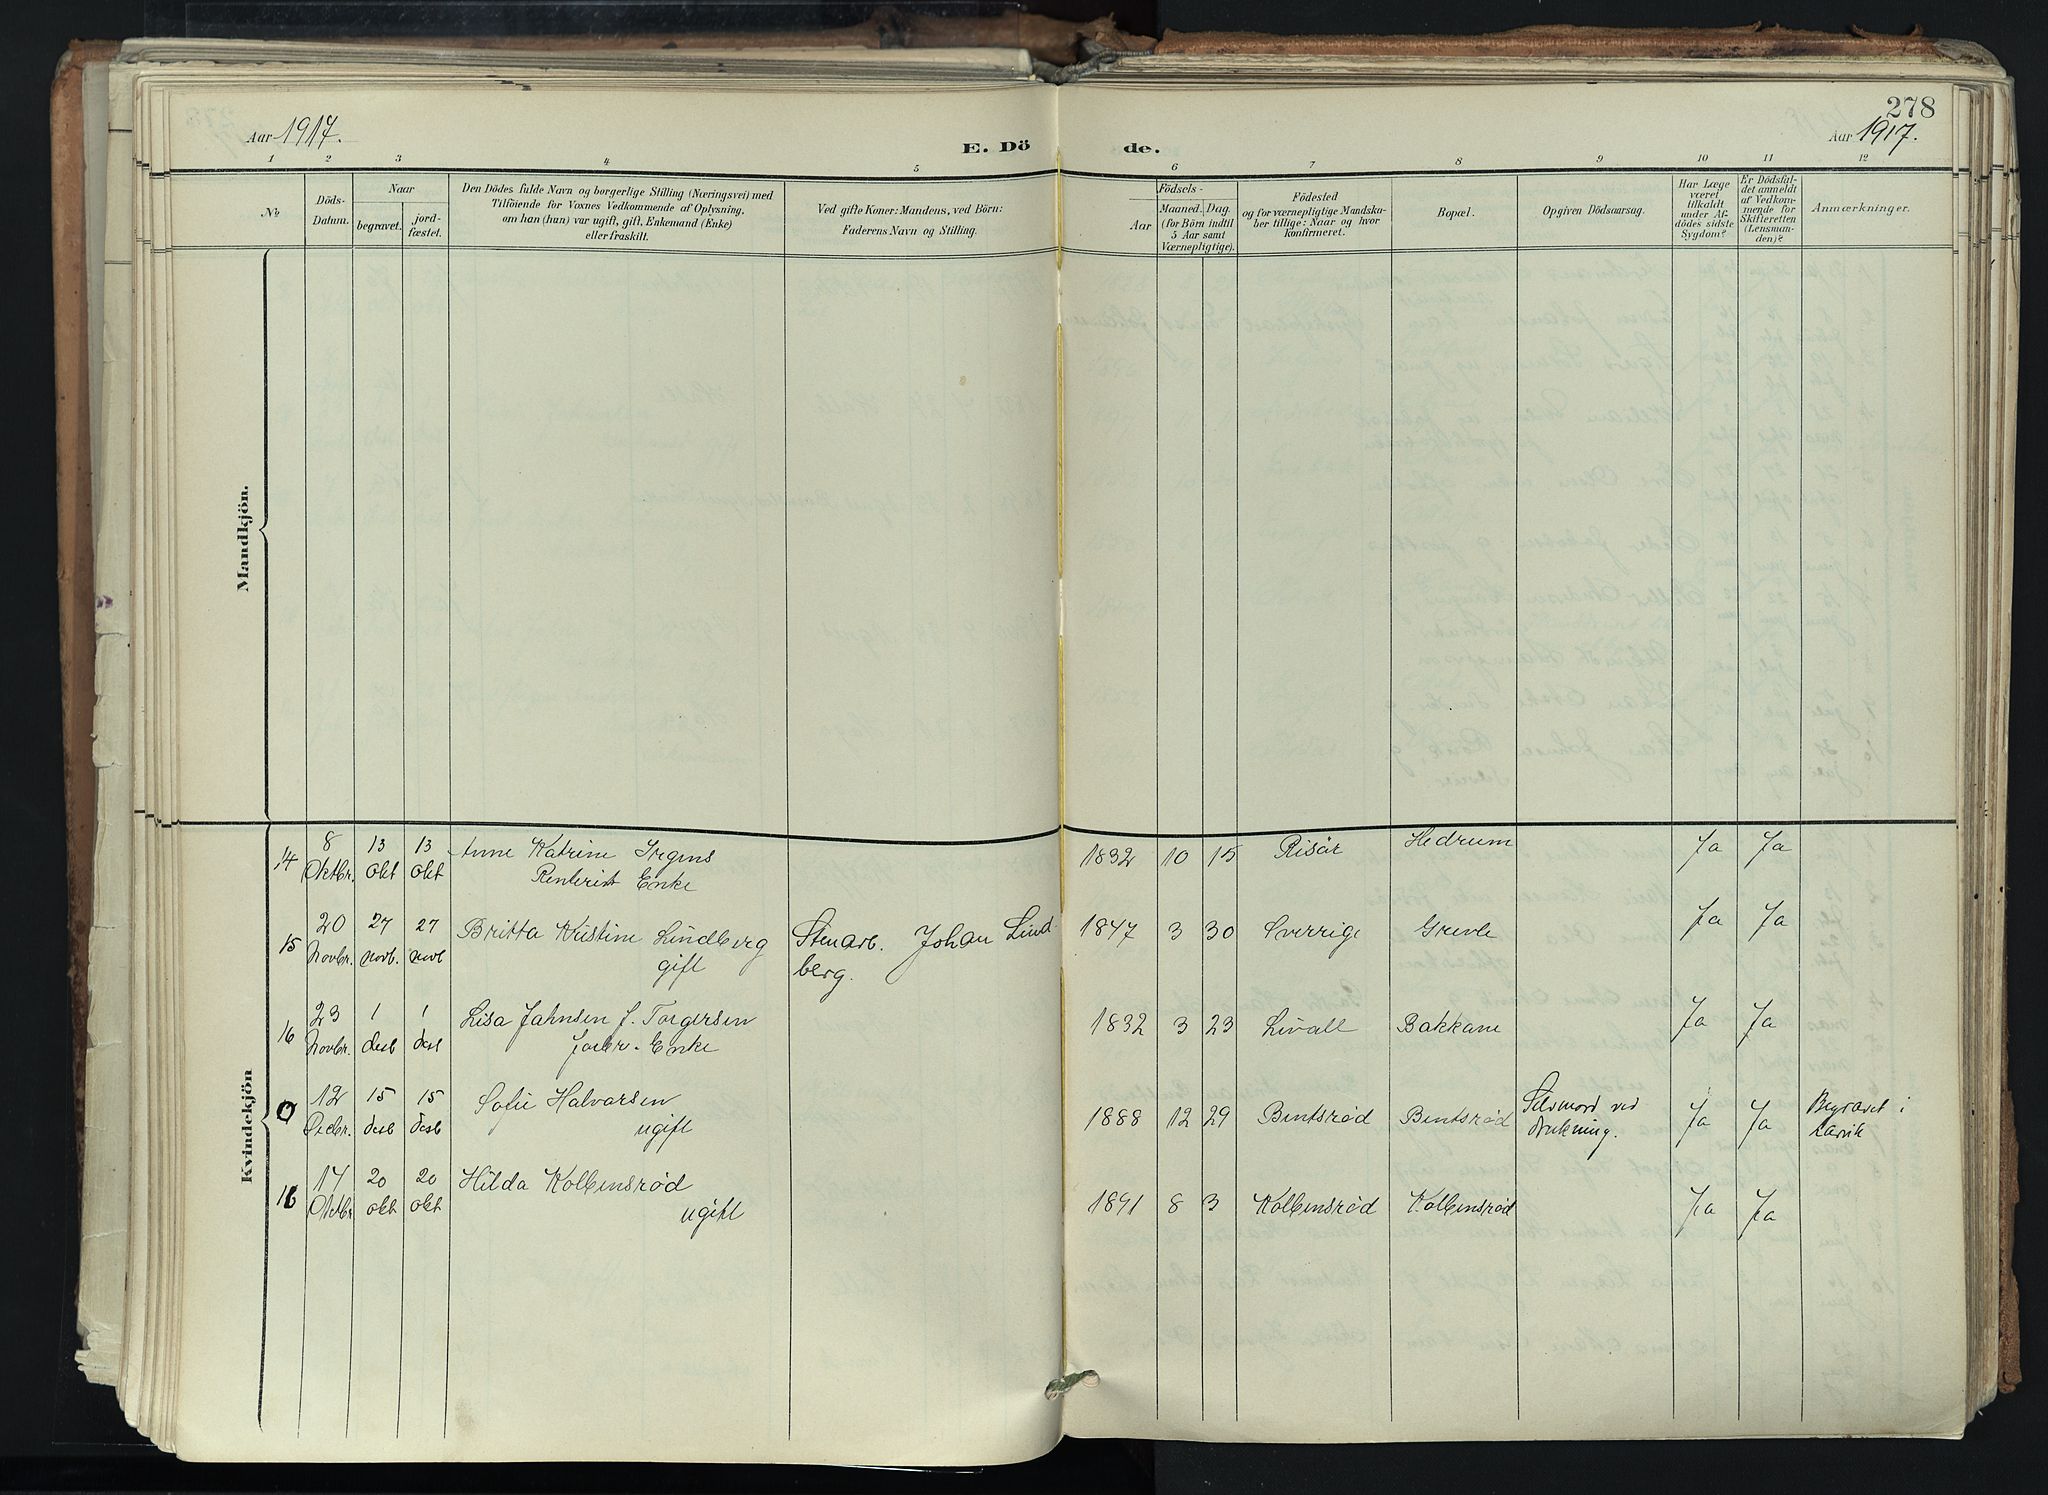 278
Aar 1917.
E. Dö de.
Aar 1917.
1 2 3 4 5 6 7 8 9 10 11 12
No
Döds-
Datum.
Naar
begravet.
jord-
fæstet.
Den Dödes fulde Navn og borgerlige Stilling (Næringsvei) med
Tilföiende for Voxnes Vedkommende af Oplysning,
om han (hun) var ugift, gift, Enkemand (Enke)
eller fraskilt.
Ved gifte Koner: Mandens, ved Börn:
Faderens Navn og Stilling.
Födsels-
Aar
Maaned. Dag.
(for Börn indtil
5 Aar samt
Værnepligtige).
Födested
og for værnepligtige Mandska-
ber tillige: Naar og hvor
konfirmeret.
Bopæl.
Opgiven Dödsaarsag.
Har Læge
været
tilkaldt
under Af-
dödes sidste
Sygdom?
Er Dödsfal-
det anmeldt
af Vedkom-
mende for
Skifteretten
(Lensman-
den)?
Anmærkninger.
Mandkjön.
Kvindekjön
14 8 13 13 Anne Katrine Irgens 1832 10 15 Risør Hedrum Ja Ja
Oktbr. okt okt Rentenist Enke
15 20 27 27 Britta Kristine Lindberg Stenarb. Johan Lind- 1847 3 30 Sverrige Grevle Ja Ja
Novbr. novb. novb gift berg.
16 23 1 1 Lisa Jahnsen f. Torgersen 1832 3 23 Livall Bakkane Ja Ja
Novbr. desb desb Enke
0 12 15 15 Sofie Halvorsen 1888 12 29 Bentsrød Bentsrød Selvmord ved Ja Ja Begravet i
Desbr. desb desb ugift drukning. Larvik
16 17 20 20 Hilda Kolbensrød 1891 8 3 Kolbensrød Kolbensrød Ja Ja
Oktbr okt okt ugift